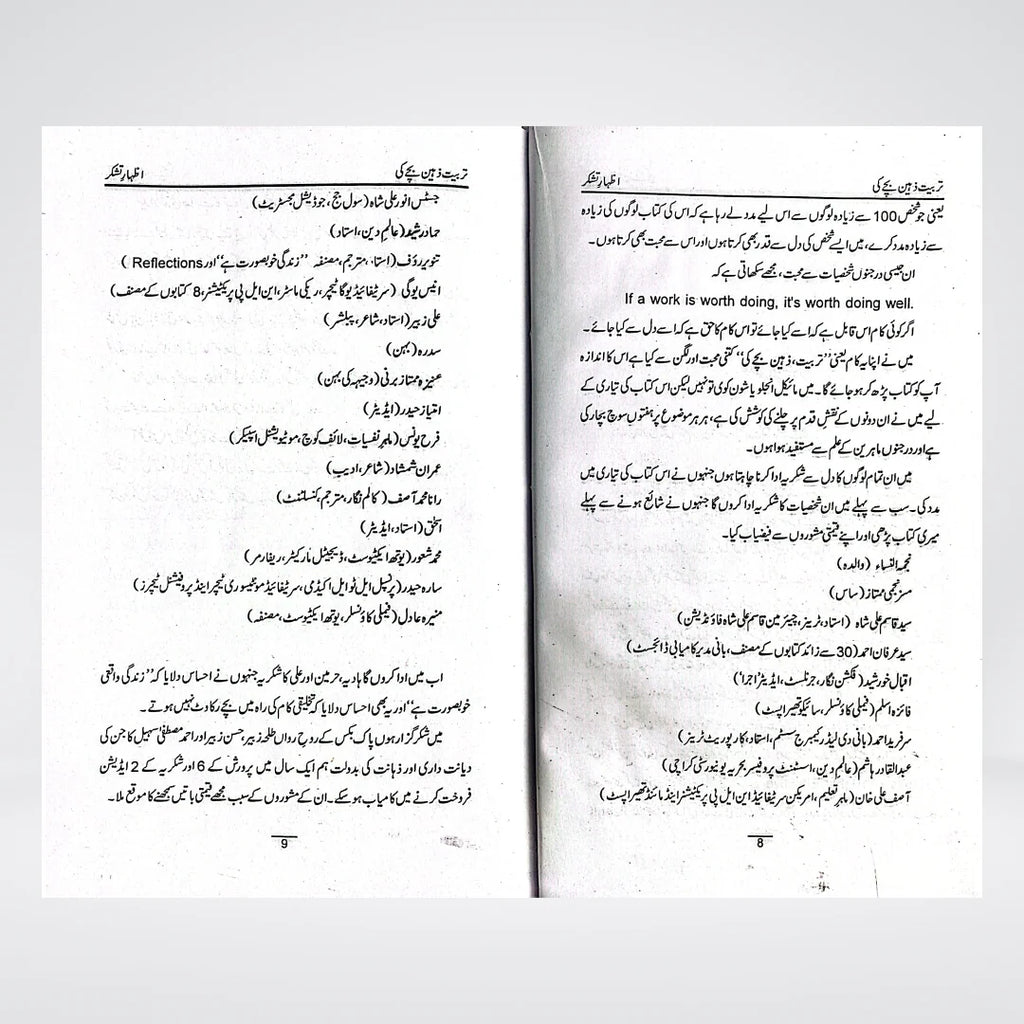 تربیت ذہین بچے کی
اظہارِ تشکر
یعنی جو شخص 100 سے زیادہ لوگوں سے اس لیے مدد لے رہا ہے کہ اس کی کتاب لوگوں کی زیادہ
سے زیادہ مدد کرے، میں ایسے شخص کی دل سے قدر بھی کرتا ہوں اور اس سے محبت بھی کرتا ہوں۔
ان جیسی درجنوں شخصیات سے محبت، مجھے سکھاتی ہے کہ
If a work is worth doing, it's worth doing well.
اگر کوئی کام اس قابل ہے کہ اسے کیا جائے تو اس کام کا حق ہے کہ اسے دل سے کیا جائے۔
میں نے اپنا یہ کام یعنی ”تربیت، ذہین بچے کی“ کتنی محبت اور لگن سے کیا ہے اس کا اندازہ
آپ کو کتاب پڑھ کر ہو جائے گا۔ میں مائیکل انجلو یا شون کوی تو نہیں لیکن اس کتاب کی تیاری کے
لیے میں نے ان دونوں کے نقشِ قدم پر چلنے کی کوشش کی ہے، ہر ہر موضوع پر ہفتوں سوچ بچار کی
ہے اور درجنوں ماہرین کے علم سے مستفید ہوا ہوں۔
میں ان تمام لوگوں کا دل سے شکریہ ادا کرنا چاہتا ہوں جنہوں نے اس کتاب کی تیاری میں
مدد کی۔ سب سے پہلے میں ان شخصیات کا شکریہ ادا کروں گا جنہوں نے شائع ہونے سے پہلے
میری کتاب پڑھی اور اپنے قیمتی مشوروں سے فیضیاب کیا۔
نجمۃ النساء (والدہ)
مسز نجمی ممتاز (ساس)
سید قاسم علی شاہ (استاد، ٹرینر، چیئرمین قاسم علی شاہ فاؤنڈیشن)
سید عرفان احمد (30 سے زائد کتابوں کے مصنف، بانی مدیر کامیابی ڈائجسٹ)
اقبال خورشید (فکشن نگار، جرنلسٹ، ایڈیٹر ’اجرا‘)
فائزہ اسلم (فیملی کاؤنسلر، سائیکوتھیراپسٹ)
سر فرید احمد (بانی دی لیڈر کیمبرج سسٹم، استاد، کارپوریٹ ٹرینر)
عبدالقادر ہاشم (عالمِ دین، اسسٹنٹ پروفیسر بحریہ یونیورسٹی کراچی)
آصف علی خان (ماہرِ تعلیم، امریکن سرٹیفائیڈ این ایل پی پریکٹیشنر اینڈ مائنڈ تھیراپسٹ)
8
تربیت ذہین بچے کی
اظہارِ تشکر
جسٹس انور علی شاہ (سول جج، جوڈیشل مجسٹریٹ)
حماد رشید (عالمِ دین، استاد)
تنویر رؤف (استاد، مترجم، مصنفہ ”زندگی خوبصورت ہے“ اور Reflections)
انیس یوگی (سرٹیفائیڈ یوگا ٹیچر، ریکی ماسٹر، این ایل پی پریکٹیشنر، 8 کتابوں کے مصنف)
علی زبیر (استاد، شاعر، پبلشر)
سدرہ (بہن)
عنیزہ ممتاز برنی (وجیہہ کی بہن)
امتیاز حیدر (ایڈیٹر)
فرح یونس (ماہرِ نفسیات، لائف کوچ، موٹیویشنل اسپیکر)
عمران شمشاد (شاعر، ادیب)
رانا محمد آصف (کالم نگار، مترجم، کنسلٹنٹ)
اسحٰق (استاد، ایڈیٹر)
محمد شعور (یوتھ ایکٹیوسٹ، ڈیجیٹل مارکیٹر، ریفارمر)
سارہ حیدر (پرنسپل ایل ٹو ایل اکیڈمی، سرٹیفائیڈ مونٹیسوری ٹیچر اینڈ پروفیشنل ٹیچرز)
منیرہ عادل (فیملی کاؤنسلر، یوتھ ایکٹیوسٹ، مصنفہ)
اب میں ادا کروں گا ہادیہ، حرمین اور علی کا شکریہ جنہوں نے احساس دلایا کہ ”زندگی واقعی
خوبصورت ہے“ اور یہ بھی احساس دلایا کہ تخلیقی کام کی راہ میں بچے رکاوٹ نہیں ہوتے۔
میں شکر گزار ہوں پاک بکس کے روحِ رواں طلحہ زبیر، حسن زبیر اور احمد مصطفیٰ سہیل کا جن کی
دیانت داری اور ذہانت کی بدولت ہم ایک سال میں پرورش کے 6 اور شکریہ کے 2 ایڈیشن
فروخت کرنے میں کامیاب ہو سکے۔ ان کے مشوروں کے سبب مجھے قیمتی باتیں سمجھنے کا موقع ملا۔
9